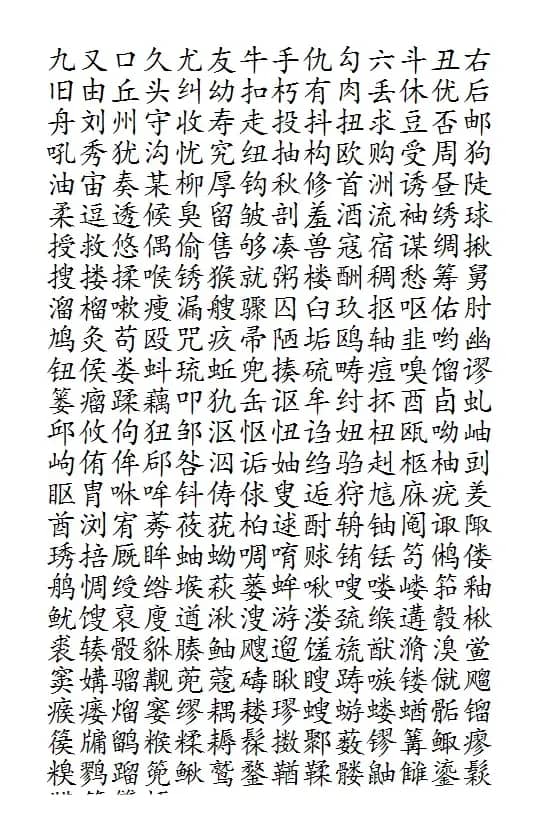 九又口久尤友牛手仇勾六斗丑右
旧由丘头纠幼扣朽有肉丢休优后
舟刘州守收寿走投抖扭求豆否邮
吼秀犹沟忧究纽抽构欧购受周狗
油宙奏某柳厚钩秋修首洲诱昼陡
柔逗透候臭留皱剖羞酒流袖绣球
授救悠偶偷售够凑兽寇宿谋绸揪
搜搂揉喉锈猴就粥楼酬稠愁筹舅
溜榴嗽瘦漏艘骤囚臼玖抠呕佑肘
鸠灸苟殴咒疚帚陋垢鸥轴韭哟幽
钮侯娄蚪琉蚯兜揍硫畴痘嗅馏谬
篓瘤蹂藕叩犰缶讴牟纣抔酉卣虬
邱攸佝狃邹沤怄忸诌妞杻瓯呦岫
岣侑侔郈咎泅诟妯绉驺赳枢柚剅
眍胄咻哞钭俦俅叟逅狩訄庥疣羑
酋浏宥莠莜莸桕逑酎辀铀阄诹陬
琇掊厩眸蚰蚴啁唷赇铕铥笱鸺偻
鸼惆绶绺堠萩蒌蛑啾嗖喽嵝筘釉
鱿馊裒廋遒湫溲游溇巯缑遘彀楸
裘辏骰貅腠鲉飕遛馐旒猷滫溴蚃
窦媾骝觏蔸蔻碡瞅瞍踌嗾镂僦飗
瘊瘘熘窭缪耦耧璆螋蝣蝼蝤骺镏
篌牖鹠糇糅耨髹擞鄹薮镠篝鲰瘳
糗鹨蹓篼鳅鹫鍪鞧鞣髅鼬雠鎏鬏